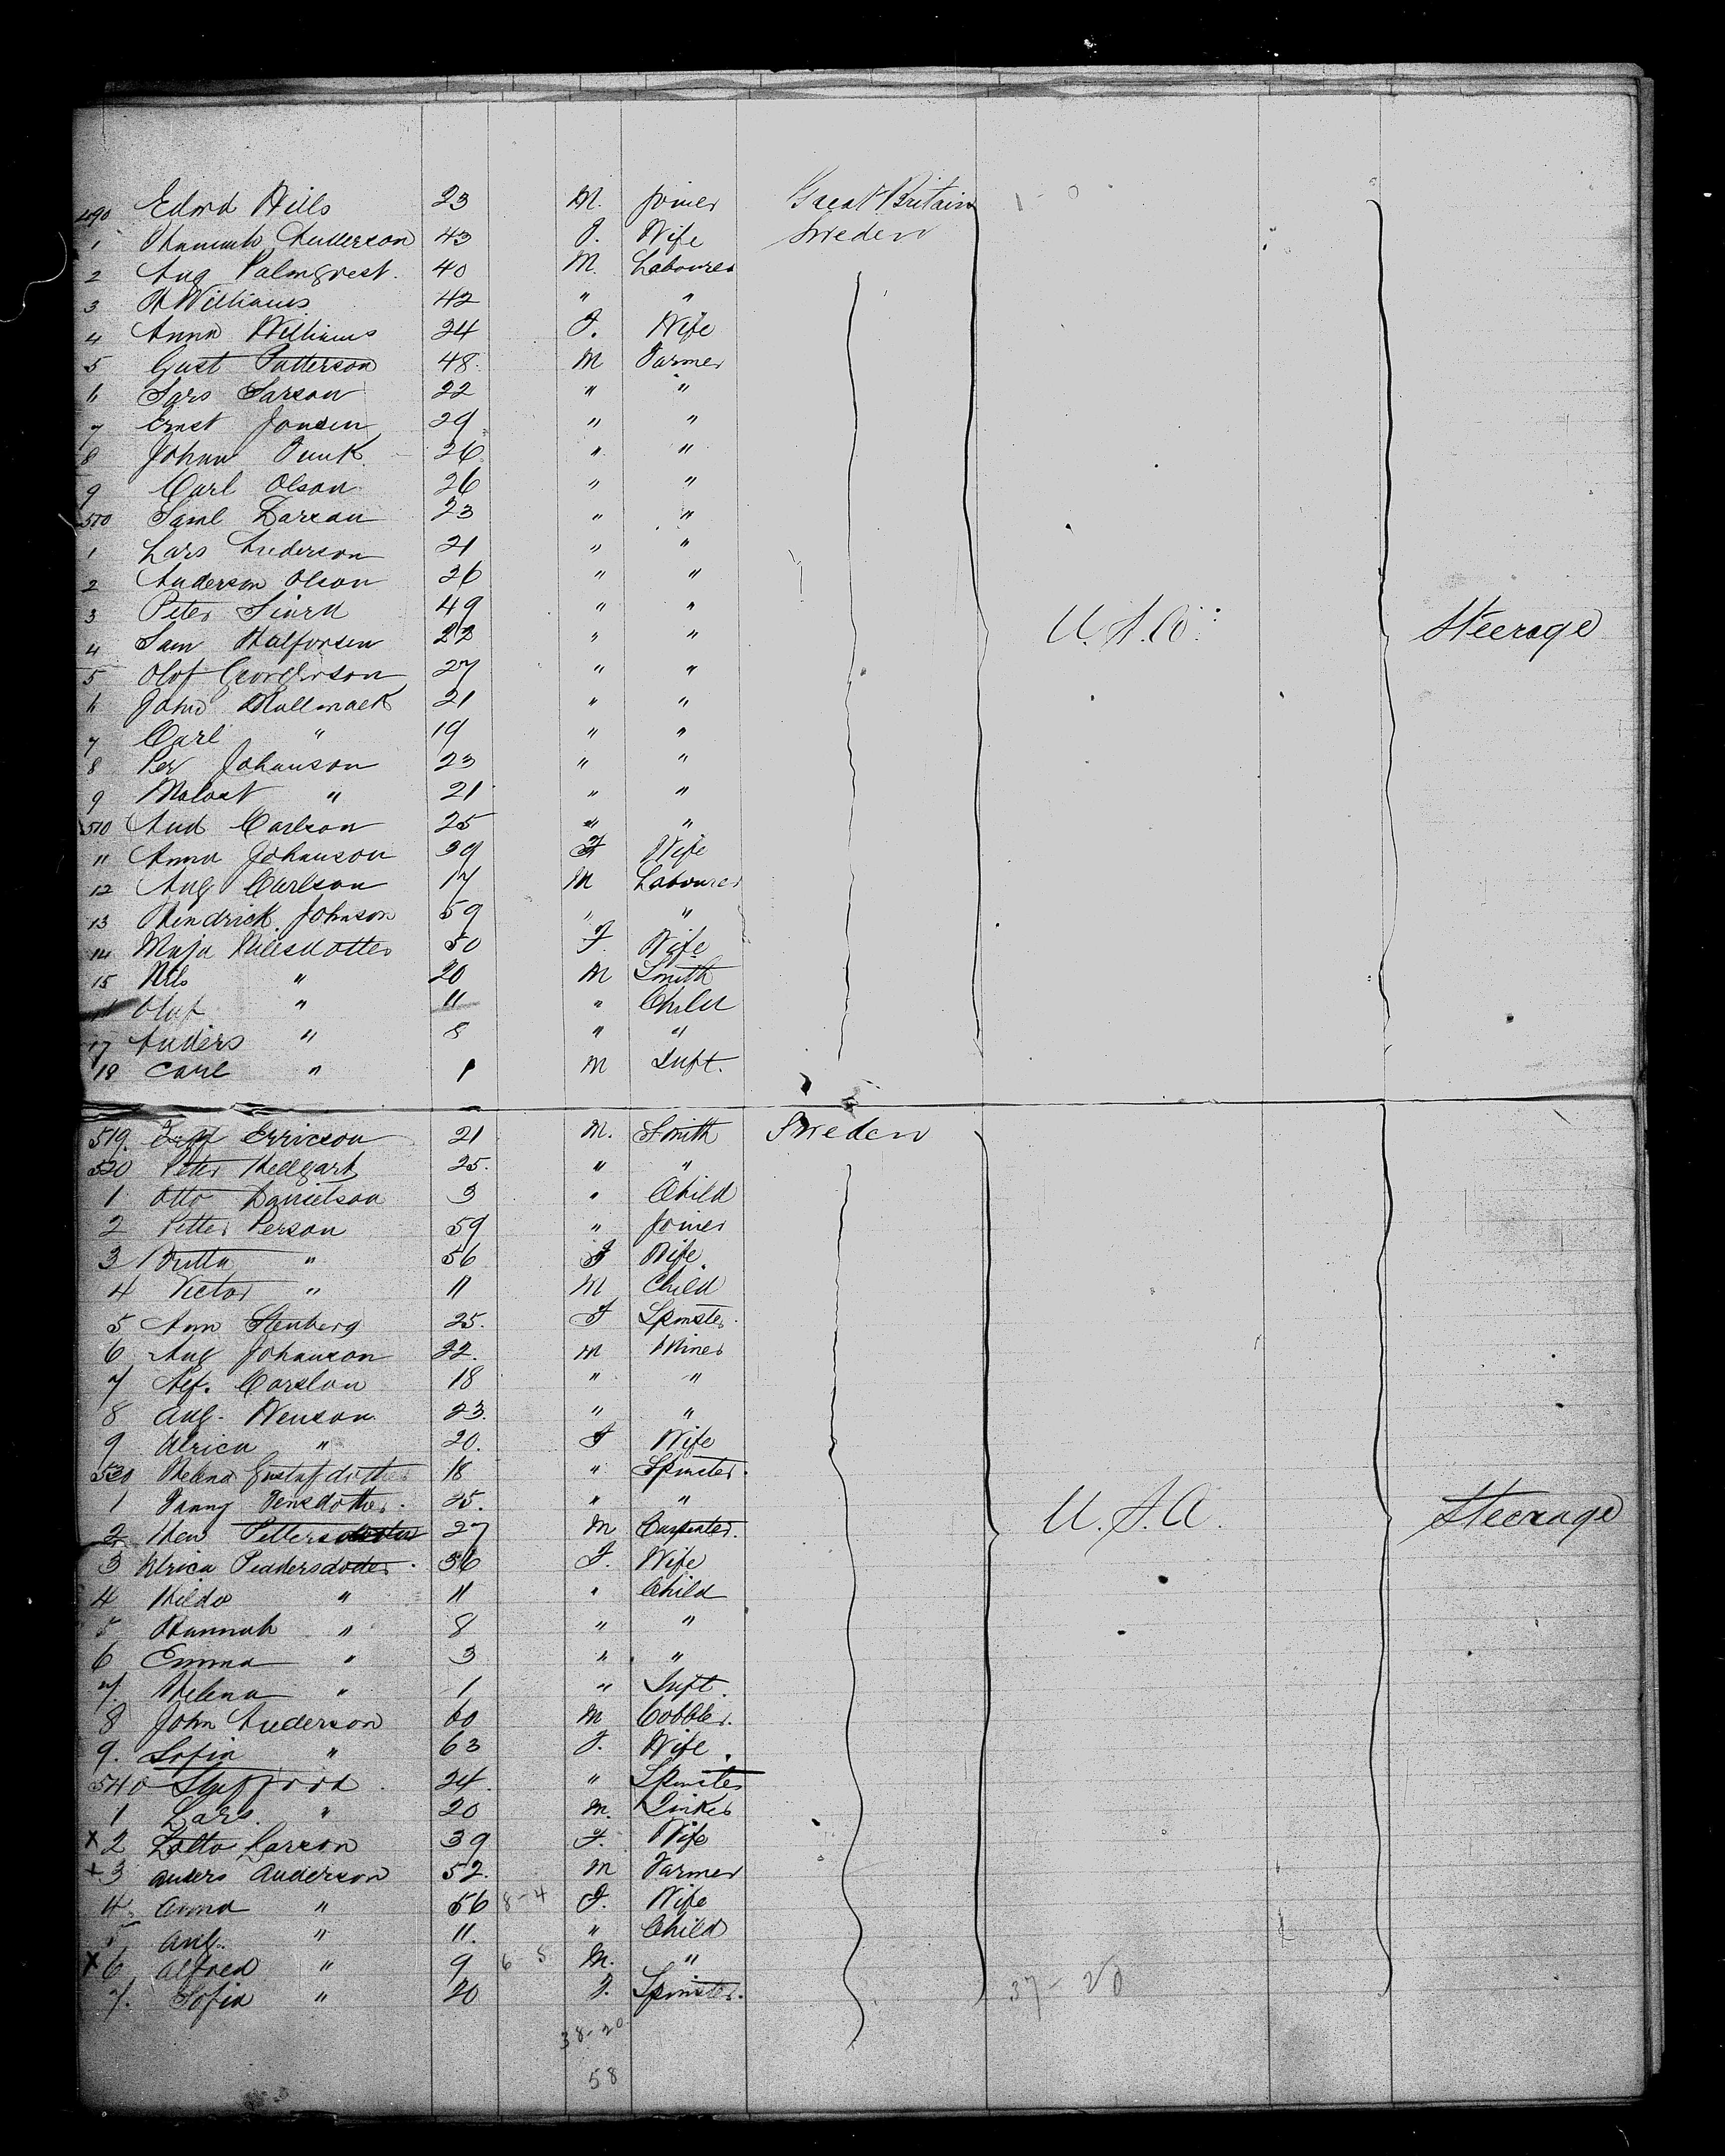 490 Edmd Hills 23 M. Joiner Great Britain 1-0
1 Hannah Anderson 43 F. Wife Sweden
2 Aug Palmqvest. 40 M. Labourer
3 H Williams 42 " "
4 Anna Williams 24 F. Wife
5 Gust Patterson 48 M Farmer
6 Lars Larson 22 " "
7 Ernst Jonsen 29 " "
8 Johan Funk 26 " "
9 Carl Olson 26 " "
500 Saml Larson 23 " "
1 Lars Anderson 21 " "
2 Anderson Olson 26 " "
3 Peter 49 " "
4 Sam Halforsen 22 " " U.S.A. Steerage
5 Olof Georgerson 27 " "
6 John 21 " "
7 Carl " 19 " "
8 Per Johanson 23 " "
9 " 21 " "
510 And Carlson 25 " "
11 Anna Johanson 39 F Wife
12 Aug Carlson 17 M Labourer
13 Hendrick Johnson 59 " "
14 Maja Nilesdotter 50 F. Wife
15 Nils " 20 M Smith
Oluf " 11 " Child
17 Anders " 8 " "
18 Carl " 1 M Inft.
519. Erricson 21 M. Smith Sweden
520 Peter Hellgark 25. " "
1 Otto Danielson 3 " Child
2 Petter Person 59 " Joiner
3 Britta " 56 F Wife.
4 Victor " 11 M Child
5 Ann Stenberg 25. F Spinster.
6 Aug Johanson 22. M Miner
7 Alf. Carslon 18 " "
8 Aug. Wenson 23. " "
9 Ulrica " 20. F Wife
530 Helena Gustafdotter 18 " Spinster.
1 Fanny Jensdotter. 25. " "
2 Petters 27 M Carpenter. U.S.A. Steerage
3 Ulrica Peadersdoder. 36 F. Wife
4 Hilda " 11 " Child
5 Hannah " 8 " "
6 Emma " 3 " "
7. Helena " 1 " Inft
8 John Anderson 60 M Cobbler.
9. Sofia " 63 F. Wife.
540 24. " Spinster
1 Lars. " 20 M. Tinker
x 2 Lotta Larson 39 F. Wife
x 3 Anders Anderson 52. M Farmer
4. Anna " 56 8-4 F. Wife
5 Aug. " 11. " Child
x 6 Alfred " 9 6 5 M. "
7. Sofia " 20 F. Spinster. 37-20
38-20
58